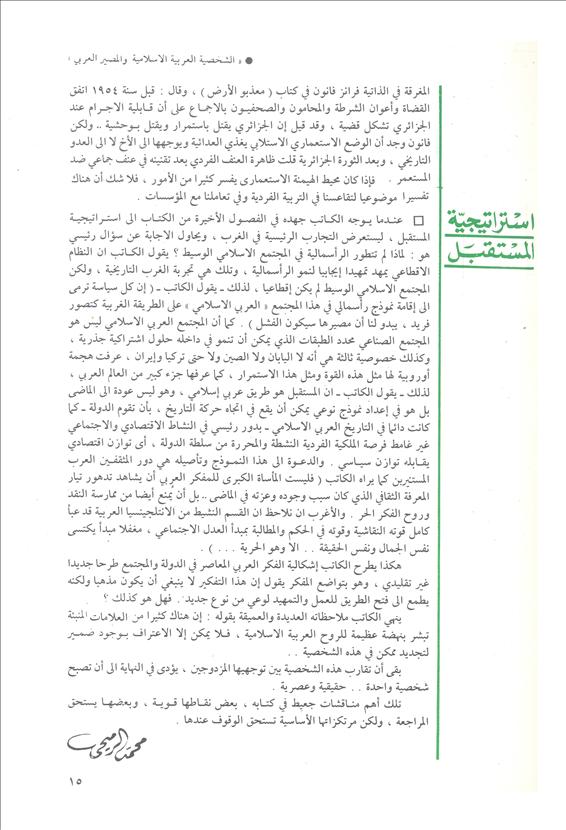 ● « الشخصية العربية الاسلامية والمصير العربي »
المغرقة في الذاتية فرانز فانون في كتاب ( معذبو الأرض ) ، وقال : قبل سنة ١٩٥٤ اتفق
القضاة وأعوان الشرطة والمحامون والصحفيون بالاجماع على أن قابلية الاجرام عند
الجزائري تشكل قضية ، وقد قيل إن الجزائري يقتل باستمرار ويقتل بوحشية .. ولكن
فانون وجد أن الوضع الاستعماري الاستلابي يغذي العدائية ويوجهها الى الأخ لا الى العدو
التاريخي ، وبعد الثورة الجزائرية قلت ظاهرة العنف الفردي بعد تقنينه في عنف جماعي ضد
المستعمر . فإذا كان محيط الهيمنة الاستعمارى يفسر كثيرا من الأمور ، فلا شك أن هناك
تفسيرا موضوعيا لتقاعسنا في التربية الفردية وفي تعاملنا مع المؤسسات .
استراتيجية
المستقبل
□ عندما يوجه الكاتب جهده في الفصول الأخيرة من الكتاب الى استراتيجية
المستقبل ، ليستعرض التجارب الرئيسية في الغرب ، ويحاول الاجابة عن سؤال رئيسي
هو : لماذا لم تتطور الرأسمالية في المجتمع الاسلامي الوسيط ؟ يقول الكاتب ان النظام
الاقطاعي يمهد تمهيدا إيجابيا لنمو الرأسمالية ، وتلك هي تجربة الغرب التاريخية ، ولكن
المجتمع الاسلامي الوسيط لم يكن إقطاعيا ، لذلك ـ يقول الكاتب ـ ( إن كل سياسة ترمى
الى إقامة نموذج رأسمالي في هذا المجتمع « العربي الاسلامي » على الطريقة الغربية كتصور
فريد ، يبدو لنا أن مصيرها سيكون الفشل ) . كما أن المجتمع العربي الاسلامي ليس هو
المجتمع الصناعي محدد الطبقات الذي يمكن أن تنمو في داخله حلول اشتراكية جذرية ،
وكذلك خصوصية ثالثة هي أنه لا اليابان ولا الصين ولا حتى تركيا وإيران ، عرفت هجمة
أوروبية لها مثل هذه القوة ومثل هذا الاستمرار ، كما عرفها جزء كبير من العالم العربي ،
لذلك ـ يقول الكاتب ـ ان المستقبل هو طريق عربي إسلامي ، وهو ليس عودة الى الماضى
بل هو في إعداد نموذج نوعي يمكن أن يقع في اتجاه حركة التاريخ ، بأن تقوم الدولة ـ كما
كانت دائما في التاريخ العربي الاسلامي ـ بدور رئيسي في النشاط الاقتصادي والاجتماعي
غير غامط فرصة الملكية الفردية النشطة والمحررة من سلطة الدولة ، أى توازن اقتصادي
يقابله توازن سياسي . والدعوة الى هذا النموذج وتأصيله هي دور المثقفين العرب
المستنيرين كما يراه الكاتب ( فليست المأساة الكبرى للمفكر العربي أن يشاهد تدهور تيار
المعرفة الثقافي الذي كان سبب وجوده وعزته في الماضى .. بل أن يُمنع أيضا من ممارسة النقد
وروح الفكر الحر . والأغرب ان نلاحظ ان القسم النشيط من الانتلجينسيا العربية قد عبأ
كامل قوته النقاشية وقوته في الحكم والمطالبة بمبدأ العدل الاجتماعي ، مغفلا مبدأ يكتسى
نفس الجمال ونفس الحقيقة .. الا وهو الحرية ... ) .
هكذا يطرح الكاتب إشكالية الفكر العربي المعاصر في الدولة والمجتمع طرحا جديدا
غير تقليدي ، وهو بتواضع المفكر يقول إن هذا التفكير لا ينبغي أن يكون مذهبيا ولكنه
يطمع الى فتح الطريق للعمل والتمهيد لوعي من نوع جديد . فهل هو كذلك ؟
ينهي الكاتب ملاحظاته العديدة والعميقة بقوله : إن هناك كثيرا من العلامات المنبئة
تبشر بنهضة عظيمة للروح العربية الاسلامية ، فلا يمكن إلا الاعتراف بوجود ضمير
لتجديد ممكن في هذه الشخصية ..
بقى أن تقارب هذه الشخصية بين توجهيها المزدوجين ، يؤدى في النهاية الى أن تصبح
شخصية واحدة .. حقيقية وعصرية .
تلك أهم مناقشات جعيط في كتابه ، بعض نقاطها قوية ، وبعضها يستحق
المراجعة ، ولكن مرتكزاتها الأساسية تستحق الوقوف عندها .
محمد الرميحي
١٥